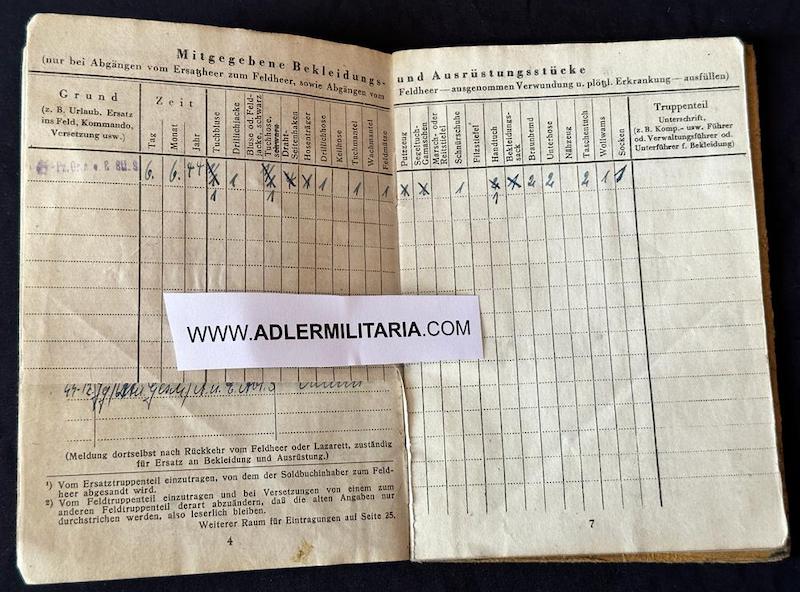 Mitgegebene Bekleidungs- und Ausrüstungsstücke
(nur bei Abgängen vom Ersatzheer zum Feldheer, sowie Abgängen vom Feldheer — ausgenommen Verwundung u. plötzl. Erkrankung — ausfüllen)
Grund
(z. B. Urlaub, Ersatz
ins Feld, Kommando,
Versetzung usw.)
Zeit
Tag
Monat
Jahr
Tuchbluse
Drillichjacke
Bluse od. Feld-
jacke, schwarz
Tuchhose,
schwarz
Draht-
Seitenhaken
Hosenträger
Drillichhose
Keilhose
Tuchmantel
Wachmantel
Feldmütze
Putzzeug
Segeltuch-
Gamaschen
Marsch- oder
Reitstiefel
Schnürschuhe
Filzstiefel
Handtuch
Bekleidungs-
sack
Braunhemd
Unterhose
Nähzeug
Taschentuch
Wollwams
Socken
Truppenteil
Unterschrift,
(z. B. Komp.- usw. Führer
od. Verwaltungsführer od.
Unterführer f. Bekleidung)
6. 6. 44 X 1 X X X 1 1 1 X X 1 X X 2 2 2 1 1
1 1 1
WWW.ADLERMILITARIA.COM
(Meldung dortselbst nach Rückkehr vom Feldheer oder Lazarett, zuständig
für Ersatz an Bekleidung und Ausrüstung.)
¹) Vom Ersatztruppenteil einzutragen, von dem der Soldbuchinhaber zum Feld-
heer abgesandt wird.
²) Vom Feldtruppenteil einzutragen und bei Versetzungen von einem zum
anderen Feldtruppenteil derart abzuändern, daß die alten Angaben nur
durchstrichen werden, also leserlich bleiben.
Weiterer Raum für Eintragungen auf Seite 25.
4
7